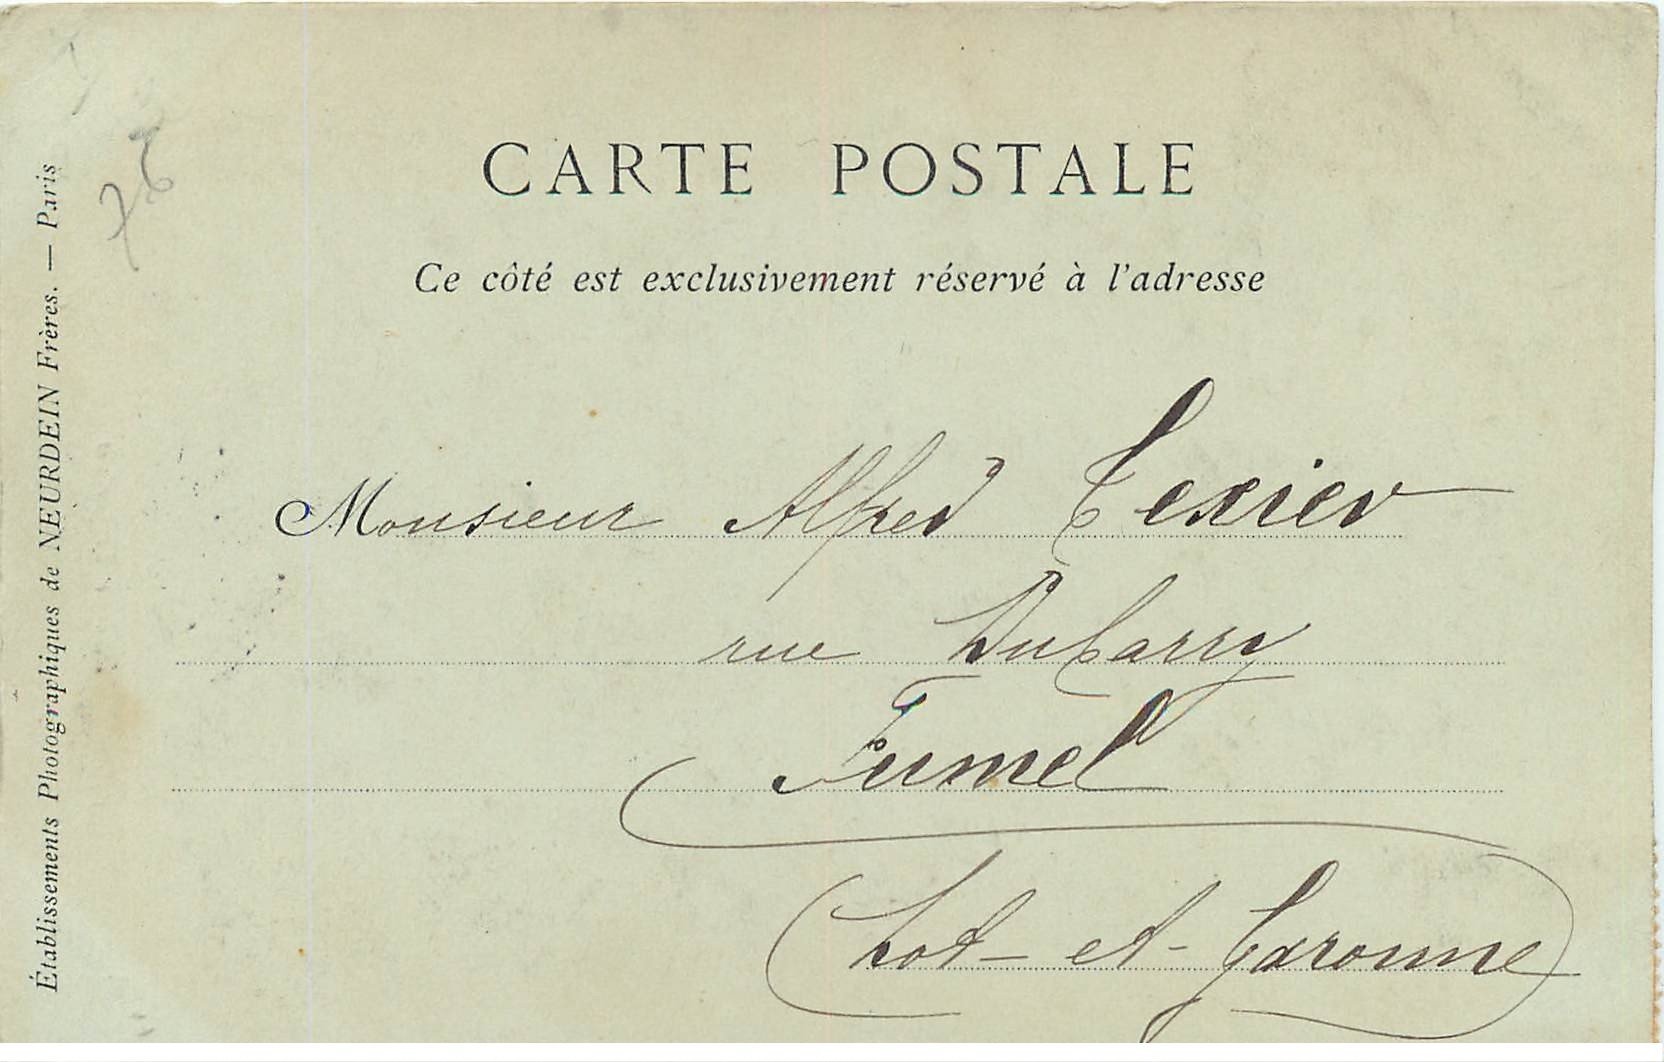 CARTE POSTALE
Ce côté est exclusivement réservé à l'adresse
Monsieur Alfred Texier
rue Dubarry
Fumel
Lot-et-Garonne
Établissements Photographiques de NEURDEIN Frères. — Paris